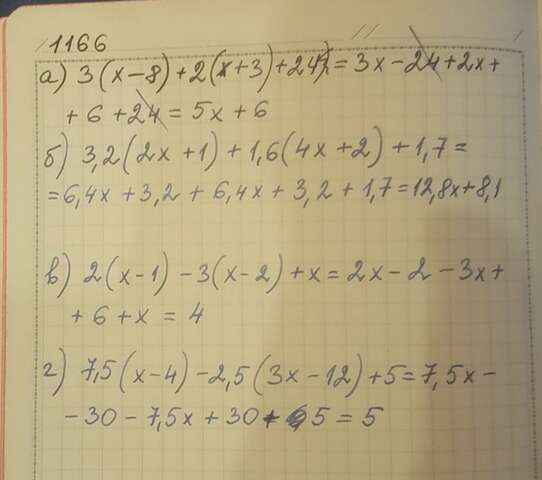 1166
а) 3(x-8)+2(x+3)+24 = 3x-24+2x+
+6+24=5x+6
б) 3,2(2x+1)+1,6(4x+2)+1,7=
=6,4x+3,2+6,4x+3,2+1,7=12,8x+8,1
в) 2(x-1)-3(x-2)+x=2x-2-3x+
+6+x=4
г) 7,5(x-4)-2,5(3x-12)+5=7,5x-
-30-7,5x+30+5=5